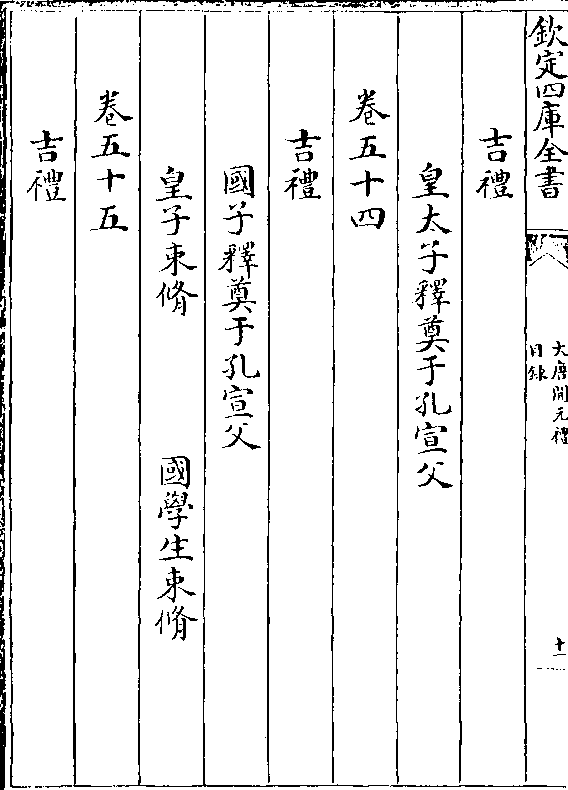 欽定四庫全書
大唐開元禮
目錄
十一
吉禮
皇太子釋奠于孔宣父
卷五十四
吉禮
國子釋奠于孔宣父
皇子束脩 國學生束脩
卷五十五
吉禮